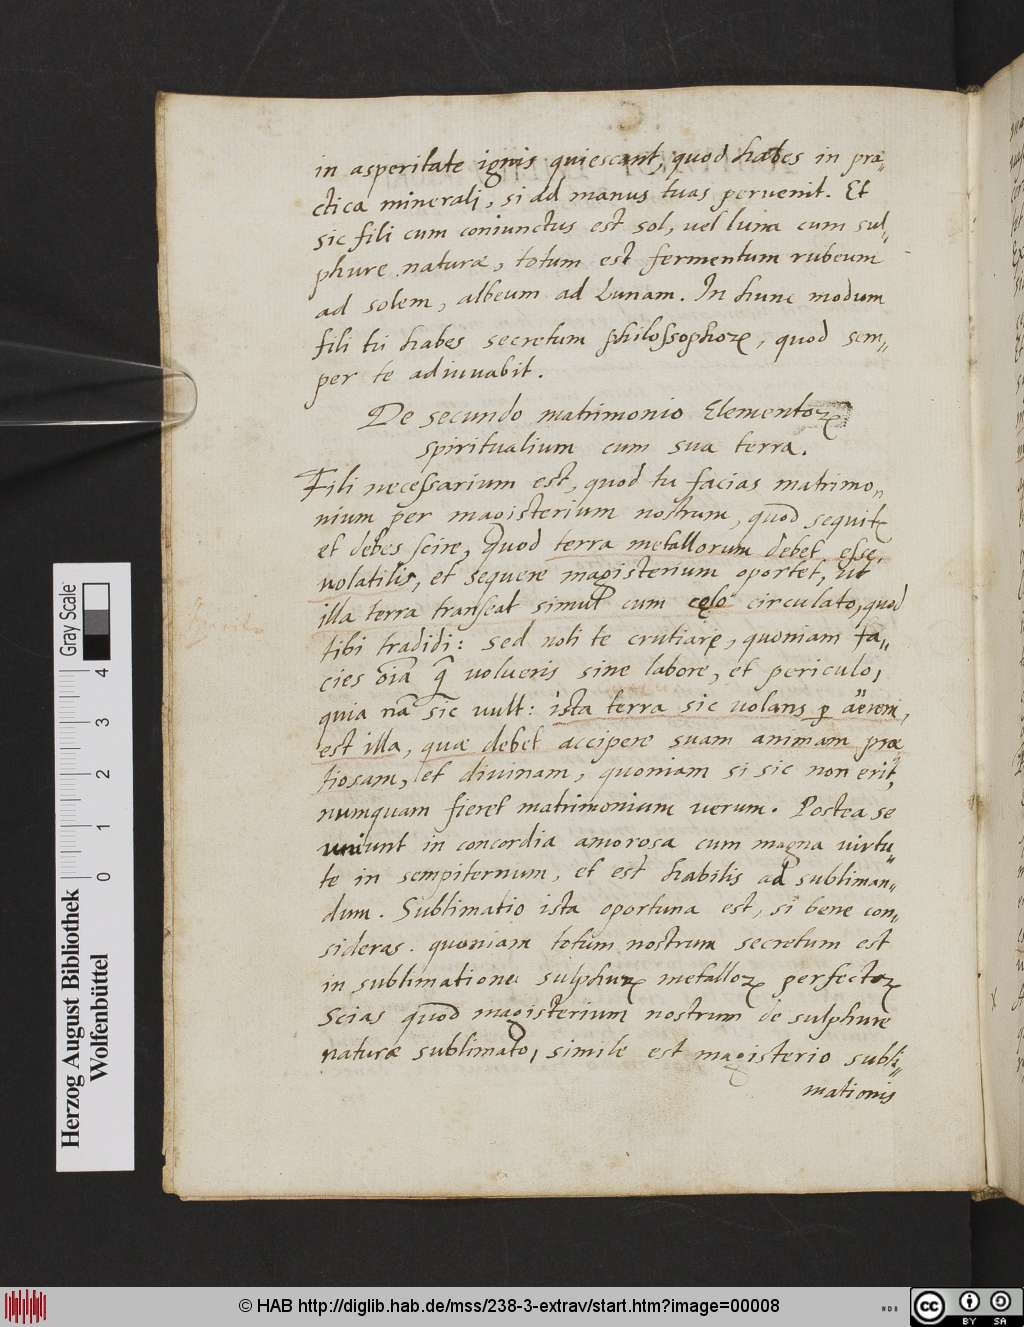 in asperitate ignis quiescant, quod habes in pra-
ctica minerali, si ad manus tuas peruenit. Et
sic fili cum coniunctus est sol, vel luna cum sul-
phure naturæ, totum est fermentum rubeum
ad solem, albeum ad Lunam. In hunc modum
fili tu habes secretum philosophoꝝ, quod sem-
per te adiuuabit.
De secundo matrimonio Elementoꝝ
spiritualium cum sua terra.
Fili necessarium est, quod tu facias matrimo-
nium per magisterium nostrum, quod sequitr
et debes scire, quod terra metallorum debet esse
uolatilis, et sequere magisterium oportet, ut
illa terra transeat simul cum cęlo circulato, quod
tibi tradidi: sed noli te crutiare, quoniam fa-
cies oīa q̄ uolueris sine labore, et periculo,
quia nā sic uult: ista terra sic uolans ꝑ aërem,
est illa, quae debet accipere suam animam præ
tiosam, et diuinam, quoniam si sic non erit,
numquam fieret matrimonium uerum. Postea se
uniunt in concordia amorosa cum magna uirtu-
te in sempiternum, et est habilis ad subliman-
dum. Sublimatio ista oportuna est, si bene con-
sideras. quoniam totum nostrum secretum est
in sublimatione sulphuꝝ metalloꝝ perfectoꝝ
Scias quod magisterium nostrum de sulphure
naturæ sublimato, simile est magisterio subli-
mationis
Herzog August Bibliothek
Wolfenbüttel
0 1 2 3 4
Gray Scale
© HAB http://diglib.hab.de/mss/238-3-extrav/start.htm?image=00008
NDB
cc BY SA